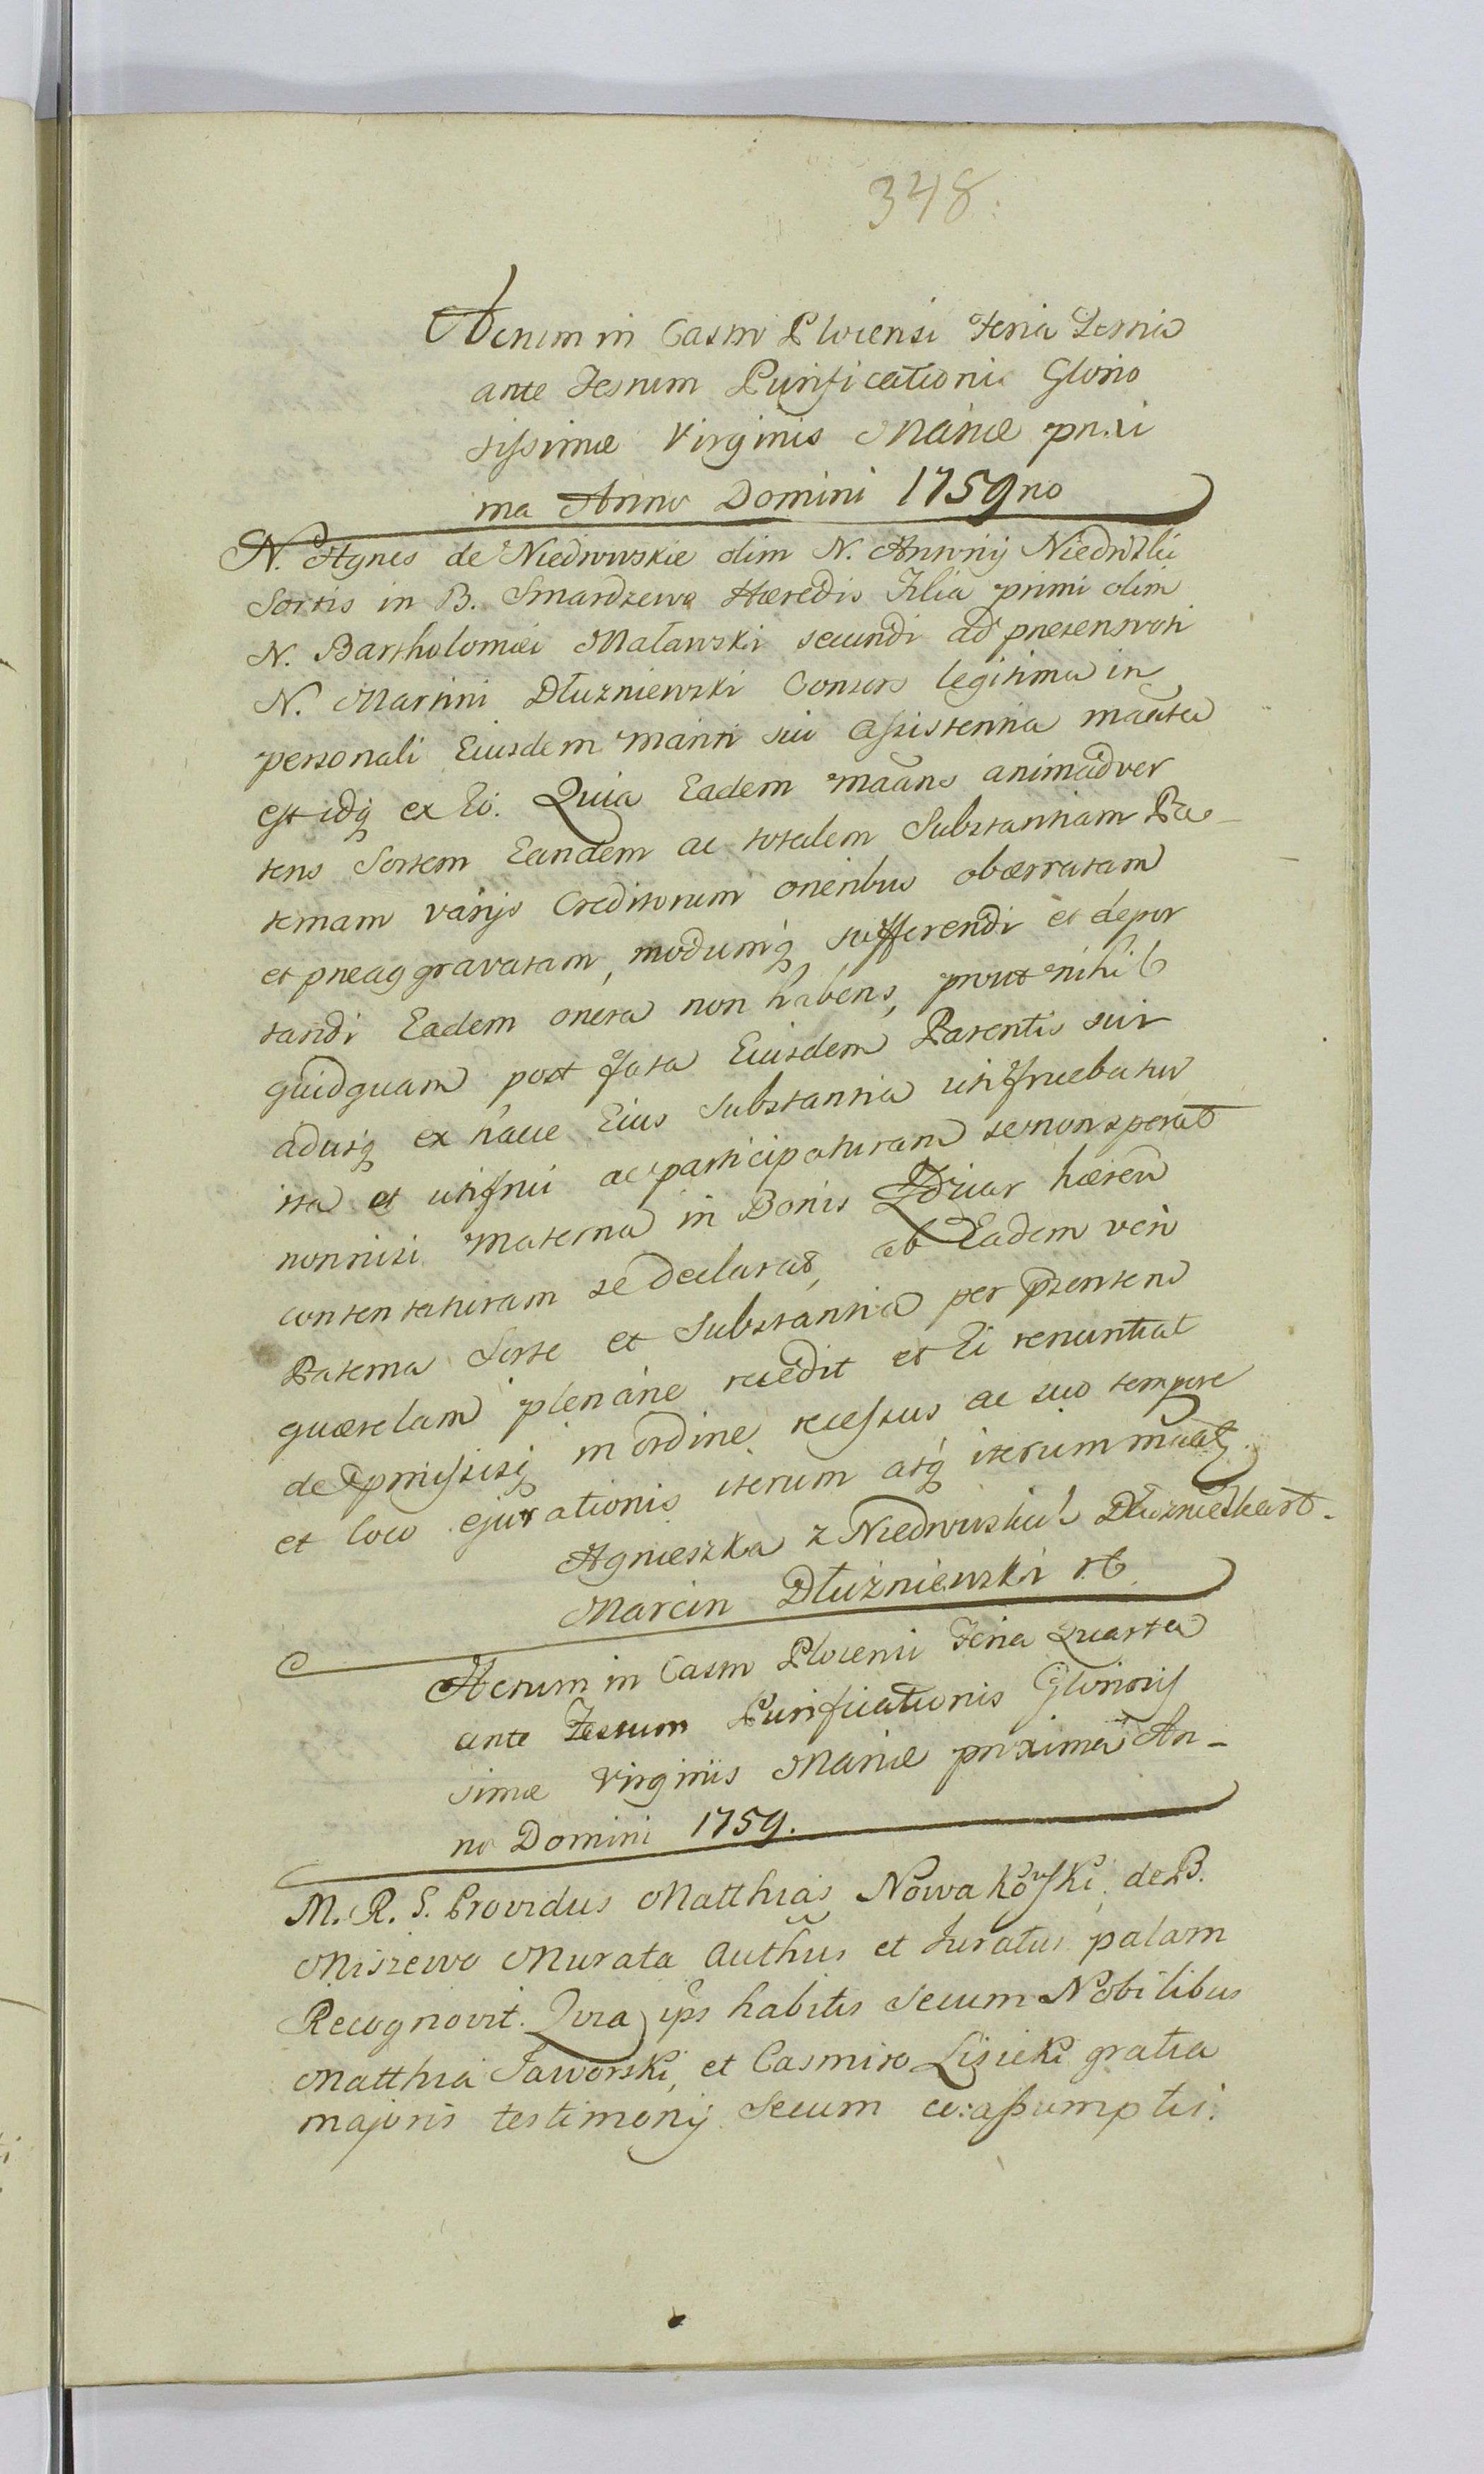 348.
Actum in Castro Plocensi Feria Tertia
ante Festum Purificationis Glorio
sissimæ Virginis Mariæ proxi
ma Anno Domini 1759no
N. Agnes de Niedrowskie olim N. Antonij
Sortis in B. Smardzewo Hæredis Filia primi olim
N. Bartholomæi Maławski secundi ad præsens voti
N. Martini Dłuzniewski Consors legitima in
personali Eiusdem mariti sui assistentia maãta
est idq ex Eo. Quia Eadem maãns animadver
tens Sortem Eandem ac totalem Substantiam Pa-
ternam varijs Creditorum oneribus obærratam
et præaggravatam, modumq sufferendi et depor
tandi Eadem onera non habens, prout nihil
quidquam post fata Eiusdem Parentis sui
adusq ex hacce Eius Substantia utifruebatur
ita et utifrui ac participaturam se non sperat
nonnisi Materna in Bonis Zdziar hæren
contentaturam se declarat, ab Eadem vero
Paterna Sorte et Substantia per præsentem
quærelam plenarie recedit et Ei renuntiat
de præmissisq in ordine recessus ac suo tempore
et loco ejurationis iterum atq iterum
Agnieszka z Niedrowskich
Marcin Dłużniewski
Actum in Castro Plocensi Feria Quarta
ante Festum Purificationis Gloriosis
simæ Virginis Mariæ proxima An-
no Domini 1759.
M. R. S. Providus Matthias Nowakowski de B.
Miszewo Murata Authus et Juratus palam
Recognovit. Quia ips habitis Secum Nobilibus
Matthia Jaworski, et Casmiro Lisicki gratia
majoris testimonij Secum co:assumptis.